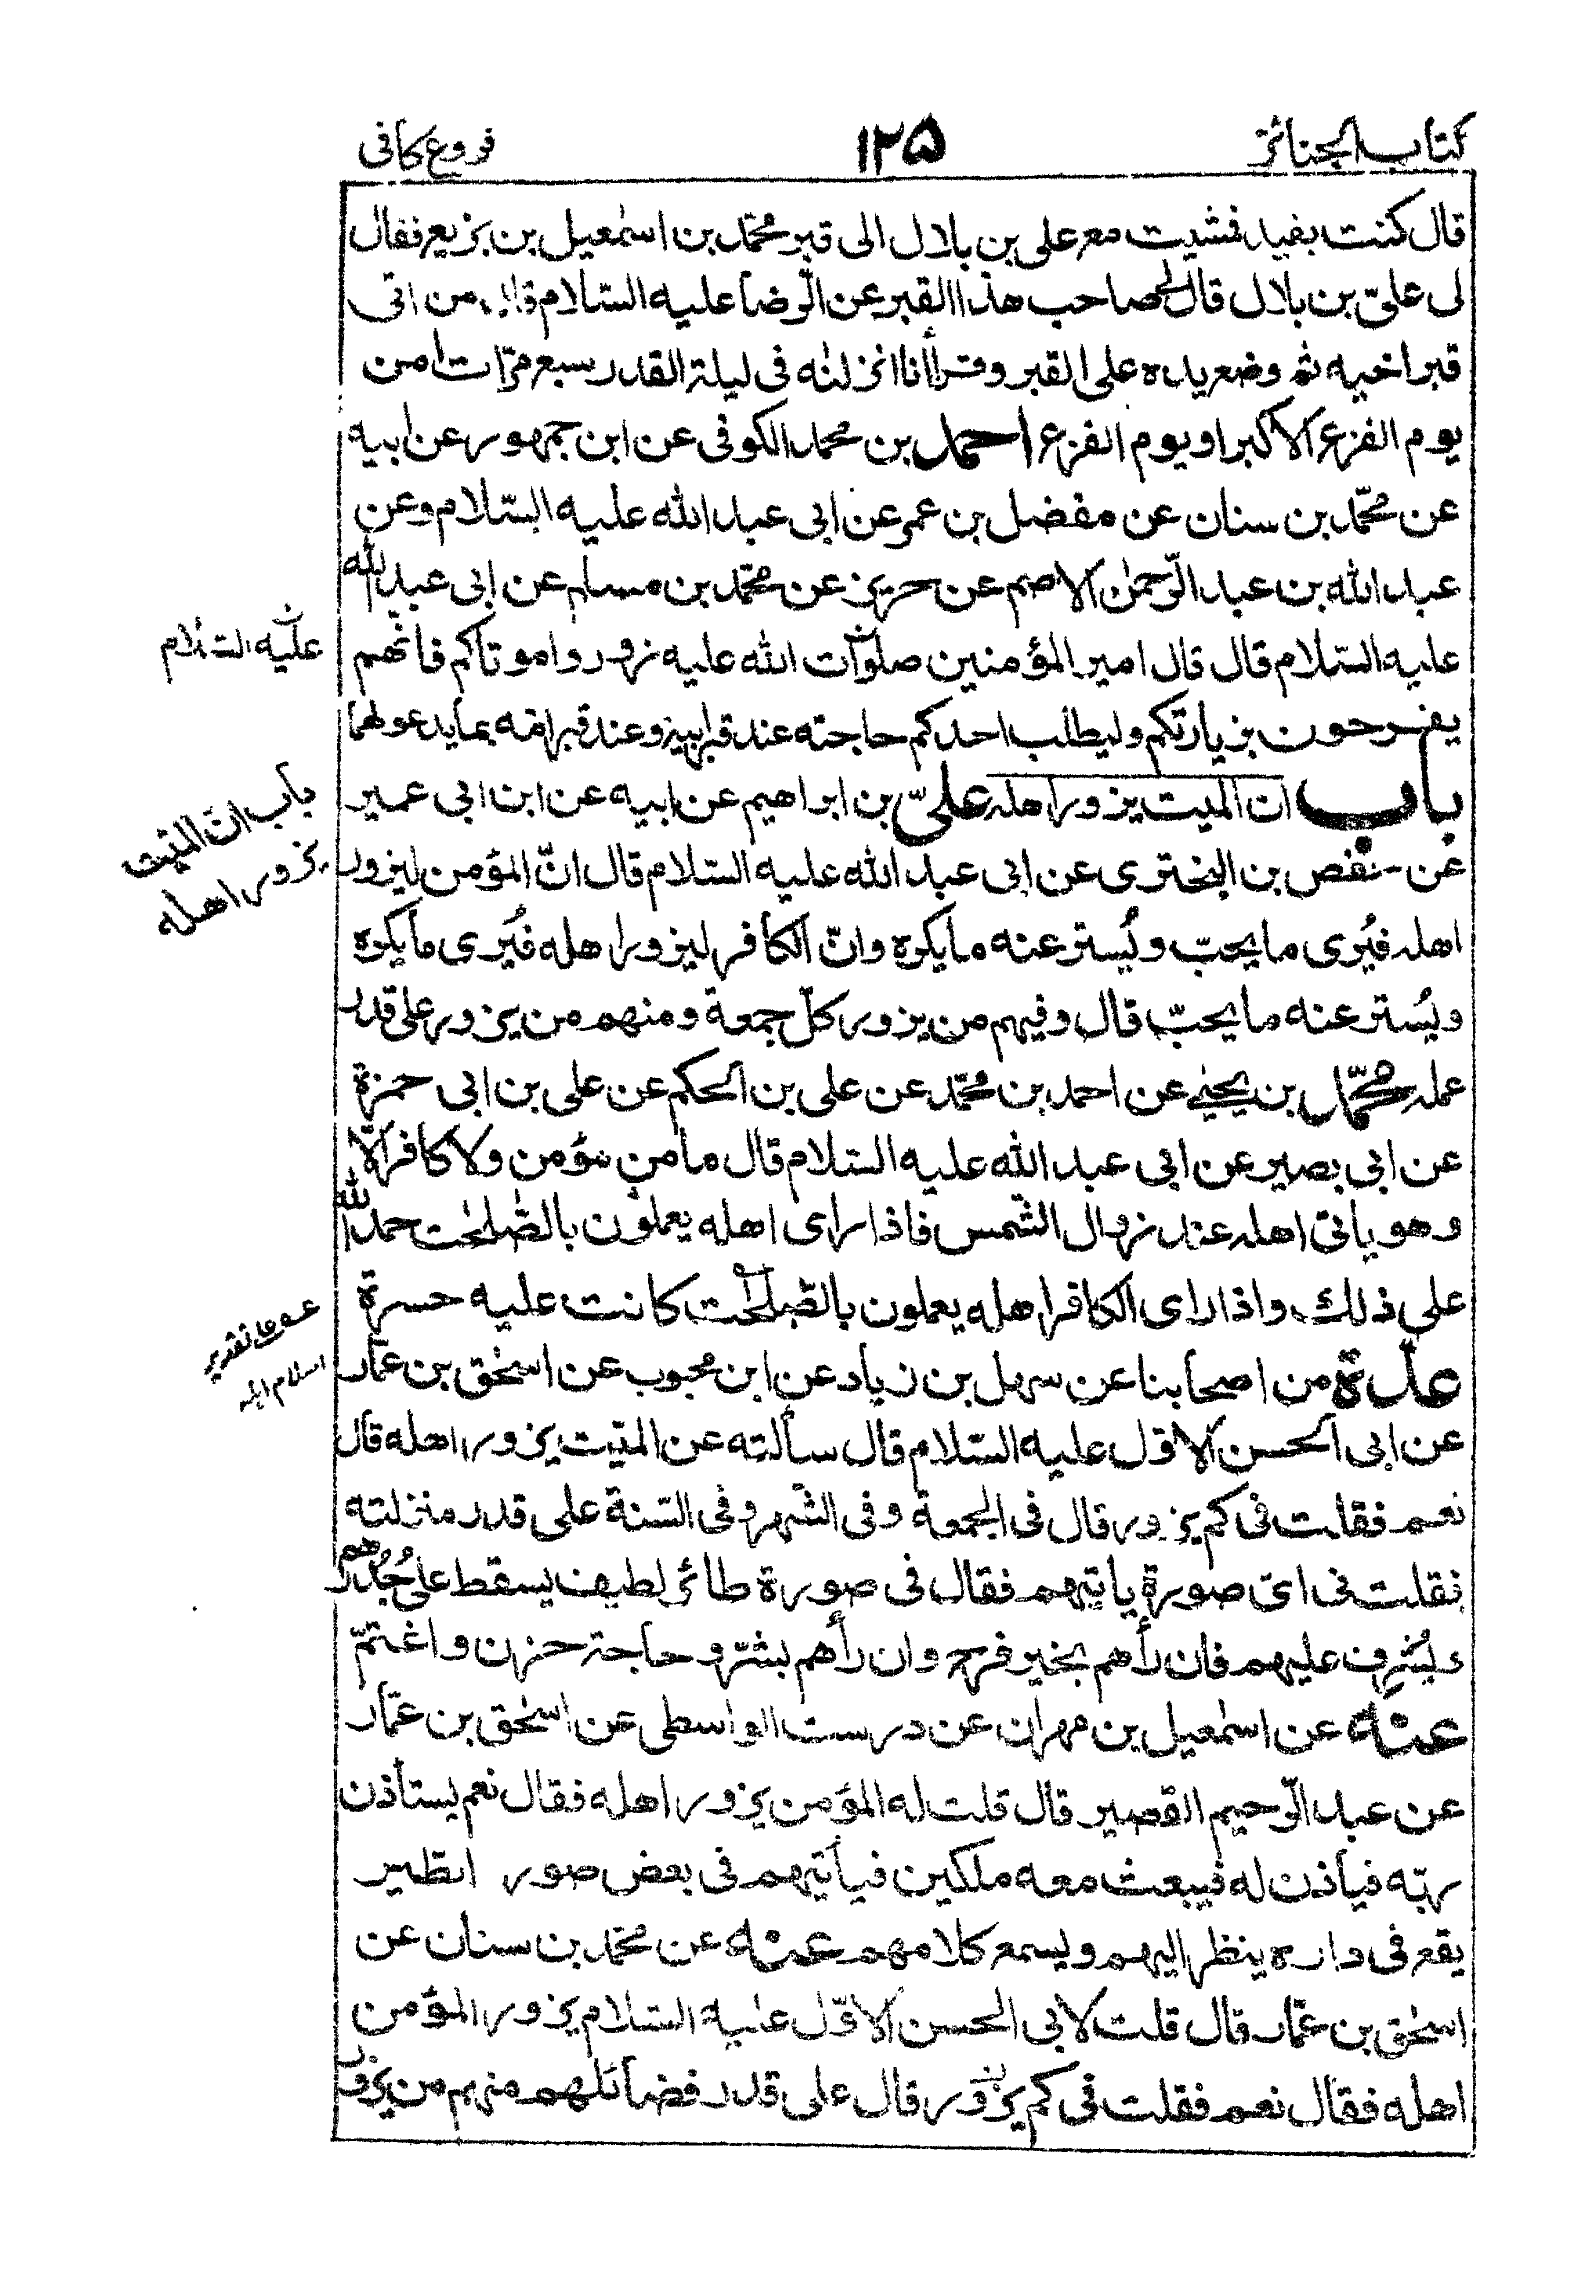 كتاب الجنائز
١٢٥
فروع كافى
قال كنت بفيد فمشيت مع على بن بلال الى قبر محمّد بن اسمٰعيل بن بزيع فقال
لى علىّ بن بلال قال لى صاحب هذا القبر عن الرّضا عليه السّلام قال من اتى
قبر اخيه ثم وضع يده على القبر وقرأ انا انزلنٰه فى ليلة القدر سبع مرّات امن
يوم الفزع الاكبر او يوم الفزع احمد بن محمد الكوفى عن ابن جمهور عن ابيه
عن محمّد بن سنان عن مفضل بن عمر عن ابى عبد الله عليه السّلام وعن
عبد الله بن عبد الرّحمٰن الاصم عن حريز عن محمّد بن مسلم عن ابى عبد الله
عليه السّلام قال قال امير المؤمنين صلوات الله عليه زوروا موتاكم فانّهم
عليه السّلام
يفرحون بزيارتكم وليطلب احدكم حاجته عند قبر ابيه وعند قبر امّه بما يدعو لهما
باب انّ الميت يزور اهله علىّ بن ابراهيم عن ابيه عن ابن ابى عمير
باب انّ الميّت
يزور اهله
عن حفص بن البخترى عن ابى عبد الله عليه السّلام قال انّ المؤمن ليزور
اهله فيُرى ما يحبّ ويُستر عنه ما يكره وانّ الكافر ليزور اهله فيُرى ما يكره
ويُستر عنه ما يحبّ قال وفيهم من يزور كلّ جمعة ومنهم من يزور على قدر
عمله محمّد بن يحيٰى عن احمد بن محمّد عن على بن الحكم عن على بن ابى حمزة
عن ابى بصير عن ابى عبد الله عليه السّلام قال ما من مؤمن ولا كافر الّا
وهو ياتى اهله عند زوال الشّمس فاذا راى اهله يعملون بالصّٰلحٰت حمد الله
على ذلك واذا راى الكافر اهله يعملون بالصّٰلحٰت كانت عليه حسرة
عدّة من اصحابنا عن سهل بن زياد عن ابن محبوب عن اسحٰق بن عمّار
عن ابى الحسن الاوّل عليه السّلام قال سألته عن الميّت يزور اهله قال
نعم فقلت فى كم يزور قال فى الجمعة وفى الشّهر وفى السّنة على قدر منزلته
فقلت فى اىّ صورة ياتيهم فقال فى صورة طائر لطيف يسقط على جُدُرهم
ويُشرف عليهم فان رأهم بخير فرح وان رأهم بشرّ وحاجة حزن واغتمّ
عنه عن اسمٰعيل بن مهران عن درست الواسطى عن اسحٰق بن عمّار
عن عبد الرّحيم القصير قال قلت له المؤمن يزور اهله فقال نعم يستأذن
ربّه فيأذن له فيبعث معه ملكين فيأتيهم فى بعض صور الطير
يقع فى داره ينظر اليهم ويسمع كلامهم عنه عن محمّد بن سنان عن
اسحٰق بن عمّار قال قلت لابى الحسن الاوّل عليه السّلام يزور المؤمن
اهله فقال نعم فقلت فى كم يزور قال على قدر فضائلهم منهم من يزور